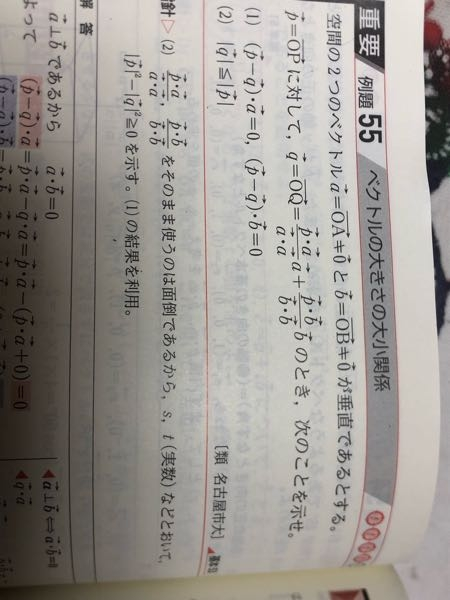 重要 例題 55 ベクトルの大きさの大小関係
空間の2つのベクトル $\vec{a}=\overrightarrow{OA}\neq\vec{0}$ と $\vec{b}=\overrightarrow{OB}\neq\vec{0}$ が垂直であるとする。
$\vec{p}=\overrightarrow{OP}$ に対して, $\vec{q}=\overrightarrow{OQ}=\frac{\vec{p}\cdot\vec{a}}{\vec{a}\cdot\vec{a}}\vec{a}+\frac{\vec{p}\cdot\vec{b}}{\vec{b}\cdot\vec{b}}\vec{b}$ のとき, 次のことを示せ。
(1) $(\vec{p}-\vec{q})\cdot\vec{a}=0$, $(\vec{p}-\vec{q})\cdot\vec{b}=0$
(2) $|\vec{q}|\leqq|\vec{p}|$
[類 名古屋市大]
針 ▷ (2) $\frac{\vec{p}\cdot\vec{a}}{\vec{a}\cdot\vec{a}}$, $\frac{\vec{p}\cdot\vec{b}}{\vec{b}\cdot\vec{b}}$ をそのまま使うのは面倒であるから, s, t (実数) などとおいて,
$|\vec{p}|^2-|\vec{q}|^2\geqq0$ を示す。(1) の結果を利用。
解答
$\vec{a}\perp\vec{b}$ であるから $\vec{a}\cdot\vec{b}=0$
◀ $\vec{a}\perp\vec{b}\Leftrightarrow\vec{a}\cdot\vec{b}=0$
よって $(\vec{p}-\vec{q})\cdot\vec{a}=\vec{p}\cdot\vec{a}-\vec{q}\cdot\vec{a}=\vec{p}\cdot\vec{a}-(\vec{p}\cdot\vec{a}+0)=0$
◀ $\vec{q}\cdot\vec{a}$
$(\vec{p}-\vec{q})\cdot\vec{b}=$